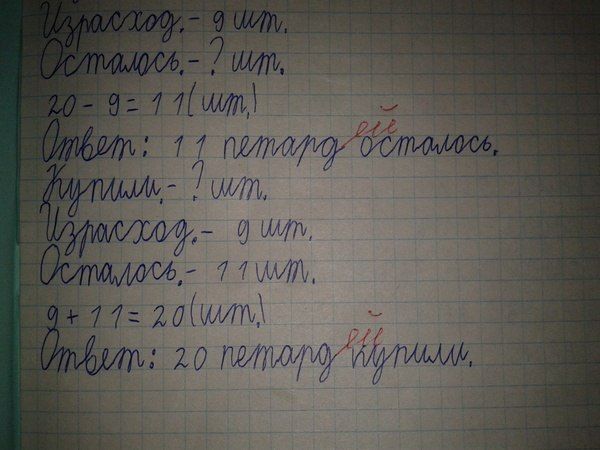 Израсход.- 9 шт.
Осталось.- ? шт.
20 - 9 = 11 (шт.)
Ответ: 11 петард ей осталось.
Купили.- ? шт.
Израсход.- 9 шт.
Осталось.- 11 шт.
9 + 11 = 20 (шт.)
Ответ: 20 петард ей купили.